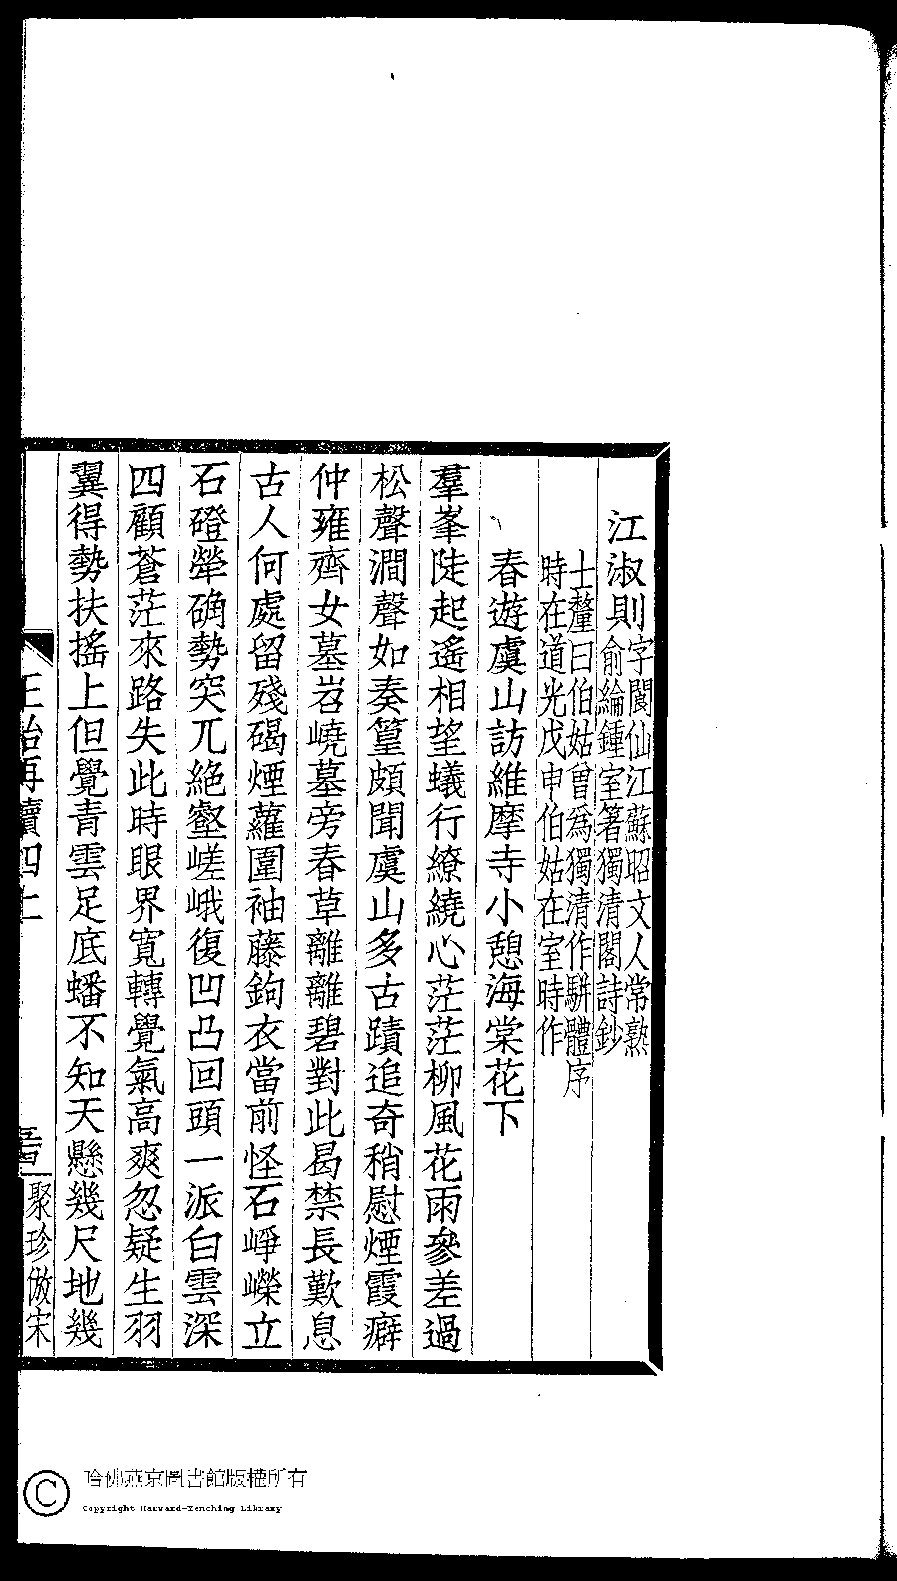 江淑則字閬仙江蘇昭文人常熟
俞綸鍾室箸獨清閣詩鈔
士釐曰伯姑曾為獨清作駢體序
時在道光戊申伯姑在室時作
春遊虞山訪維摩寺小憩海棠花下
羣峯陡起遙相望蟻行繚繞心茫茫柳風花雨參差過
松聲澗聲如奏篁頗聞虞山多古蹟追奇稍慰煙霞癖
仲雍齊女墓岧嶢墓旁春草離離碧對此曷禁長歎息
古人何處留殘碣煙蘿圍袖藤鉤衣當前怪石崢嶸立
石磴犖确勢突兀絶壑嵯峨復凹凸回頭一派白雲深
四顧蒼茫來路失此時眼界寬轉覺氣高爽忽疑生羽
翼得勢扶搖上但覺青雲足底蟠不知天懸幾尺地幾
再續四上
聚珍倣宋
哈佛燕京圖書館版權所有
Copyright Harvard-Yenching Library